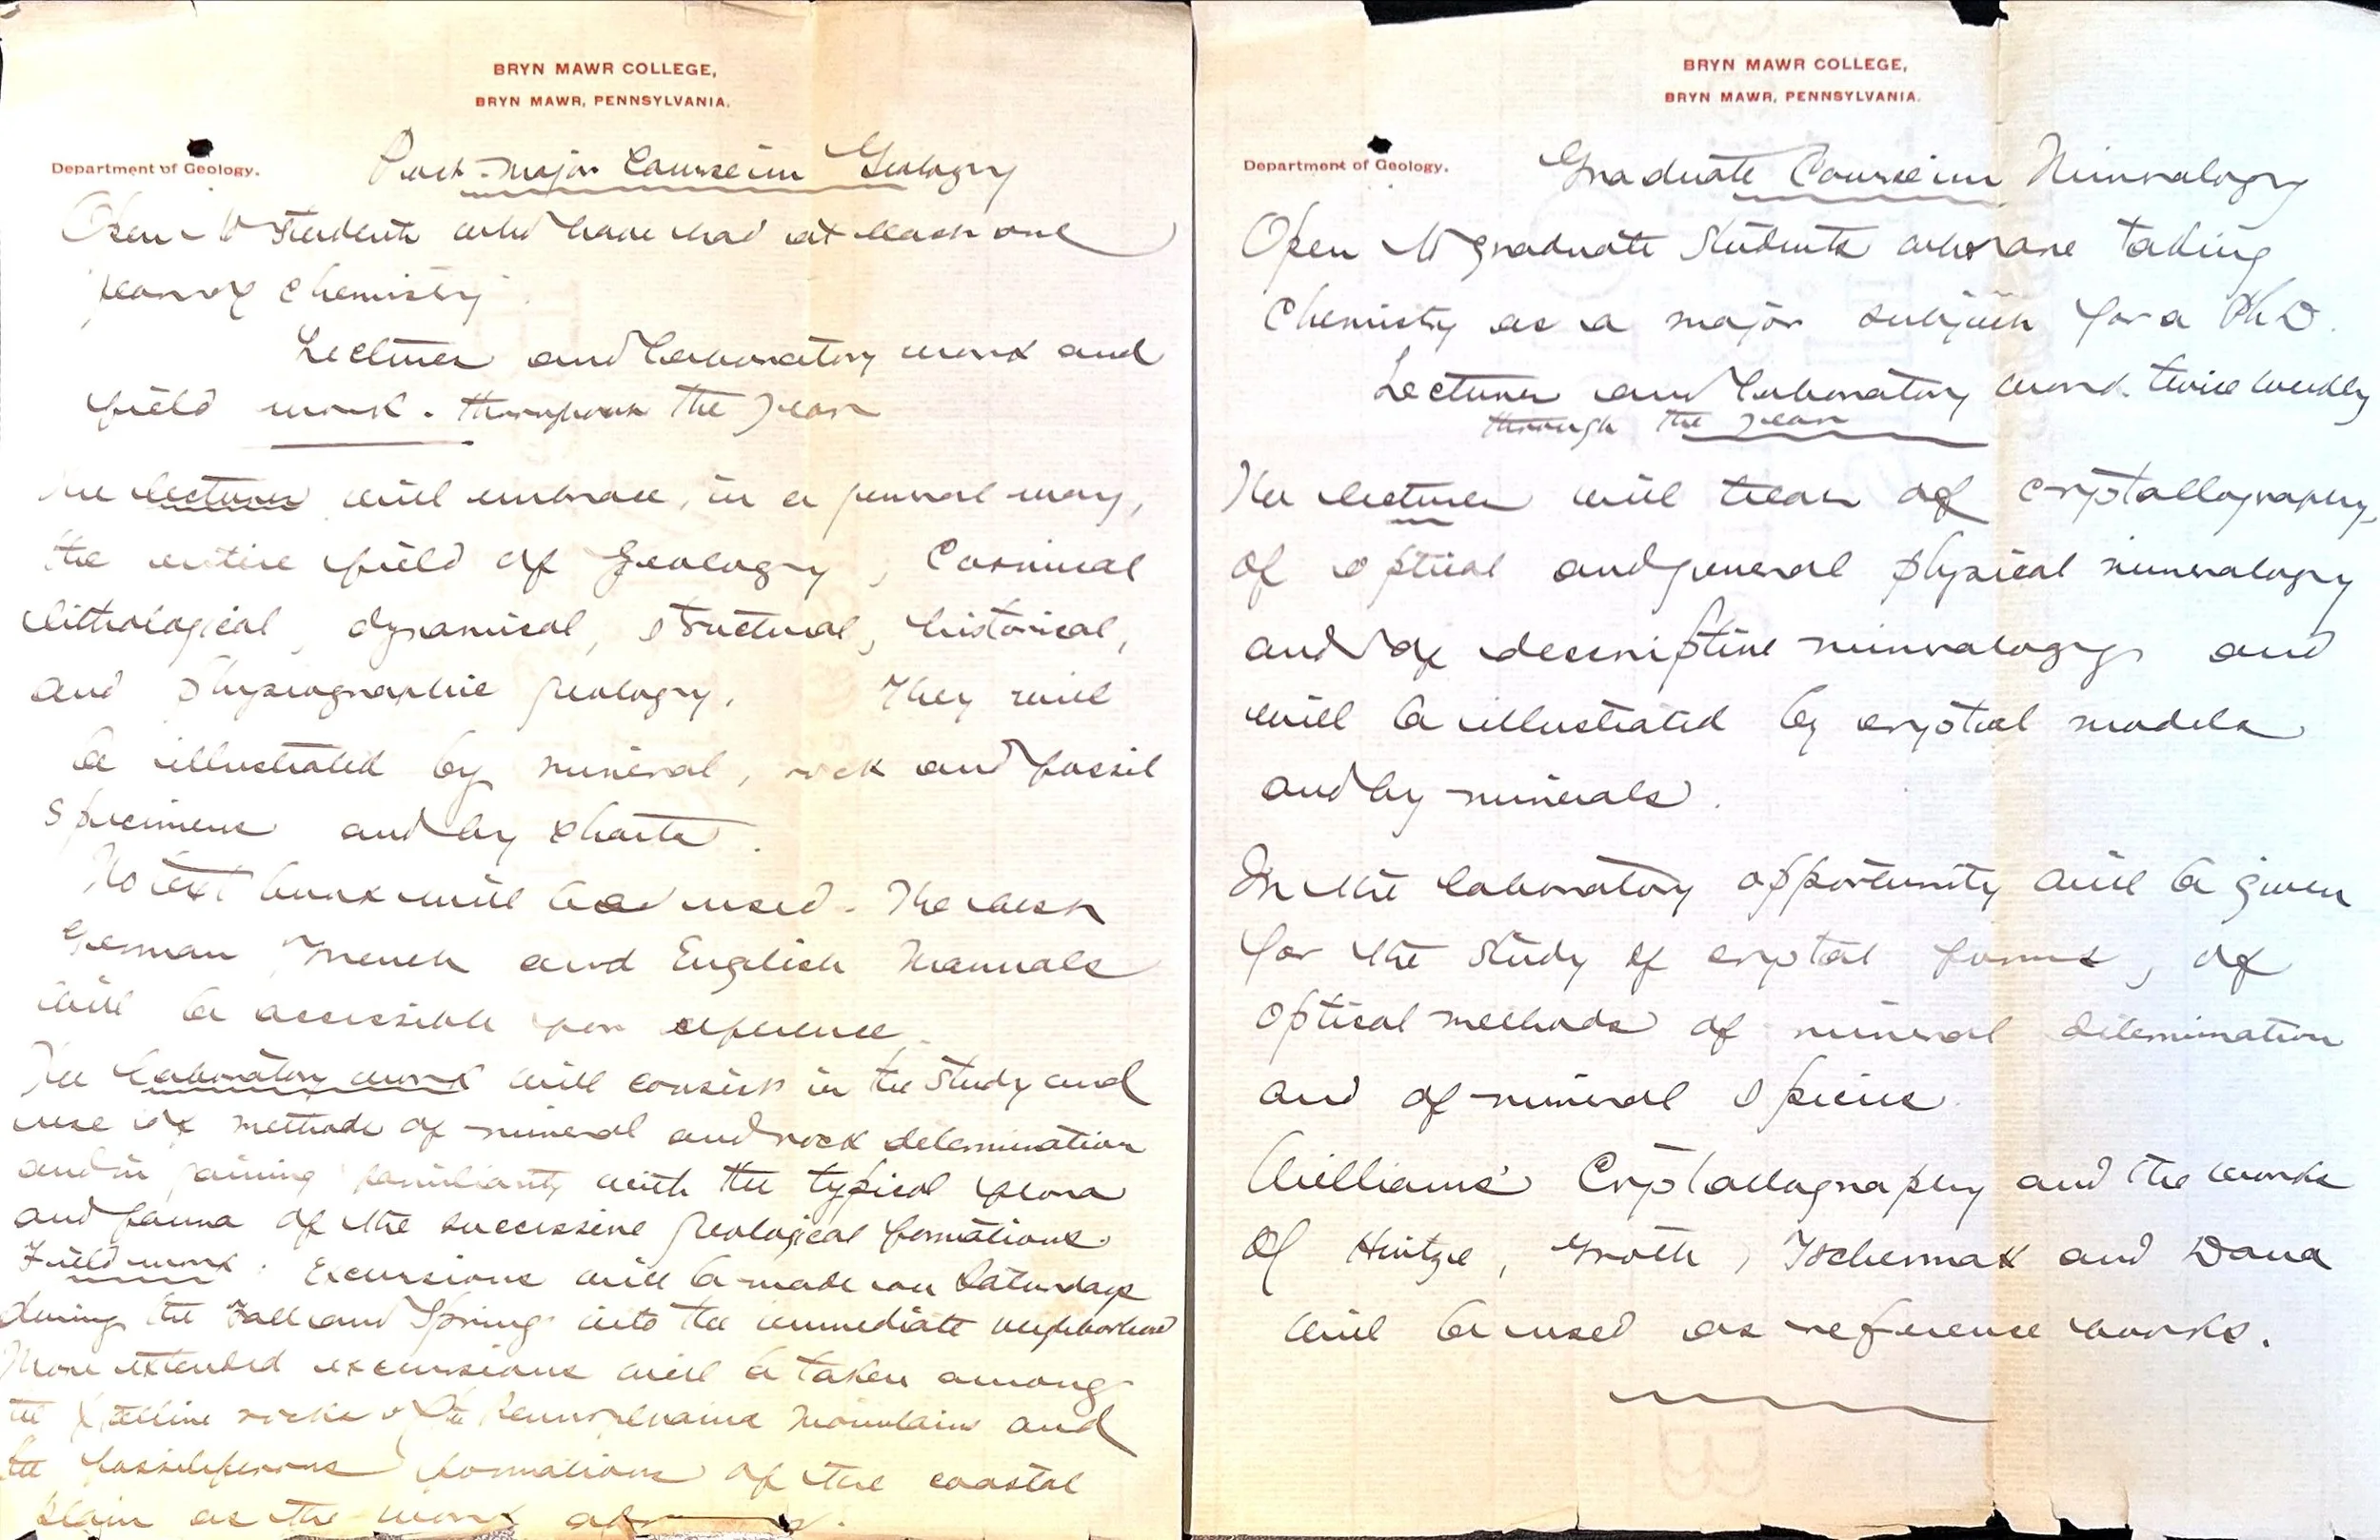 BRYN MAWR COLLEGE,
BRYN MAWR, PENNSYLVANIA.
Department of Geology.
Post-Major Course in Geology
Open to students who have had at least one
year of chemistry.
Lectures and laboratory work and
field work. throughout the year
The lectures will embrace, in a general way,
the entire field of Geology, Cosmical
lithological, dynamical, structural, historical,
and physiographic geology. They will
be illustrated by mineral, rock and fossil
specimens and by charts.
No text book will be used. The best
German French and English Manuals
will be accessible for reference.
The laboratory work will consist in the study and
use of methods of mineral and rock determination
and in gaining familiarity with the typical flora
and fauna of the successive geological formations.
Field work. Excursions will be made on Saturdays
during the Fall and Spring into the immediate neighborhood
More extended excursions will be taken among
the Xtalline rocks of the Pennsylvania Mountains and
the fossiliferous formations of the coastal
plain as the work
BRYN MAWR COLLEGE,
BRYN MAWR, PENNSYLVANIA.
Department of Geology.
Graduate Course in Mineralogy
Open to graduate students who are taking
Chemistry as a major subject for a PhD.
Lectures and laboratory work twice weekly
through the year
The lectures will treat of crystallography,
of optical and general physical mineralogy
and of descriptive mineralogy and
will be illustrated by crystal models
and by minerals.
In the laboratory opportunity will be given
for the study of crystal forms, of
optical methods of mineral determination
and of mineral species.
Williams' Crystallography and the works
of Hintze, Groth, Tschermak and Dana
will be used as reference works.